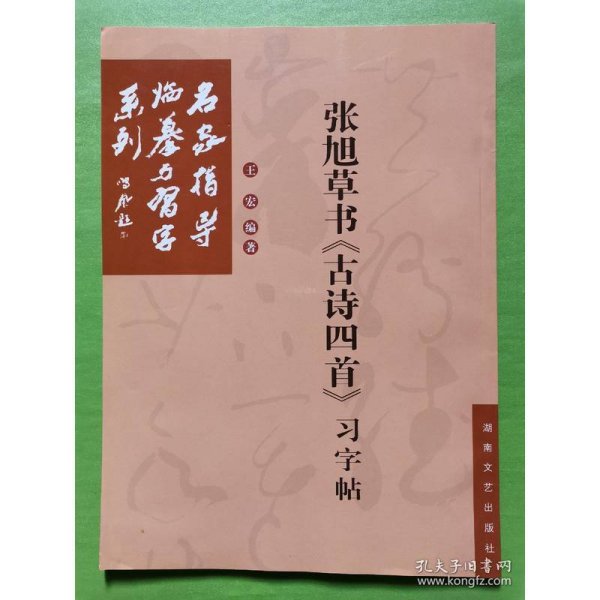 名家指导
临摹与习字
系列
张旭草书《古诗四首》习字帖
王宏编著
湖南文艺出版社
孔夫子旧书网
www.kongfz.com